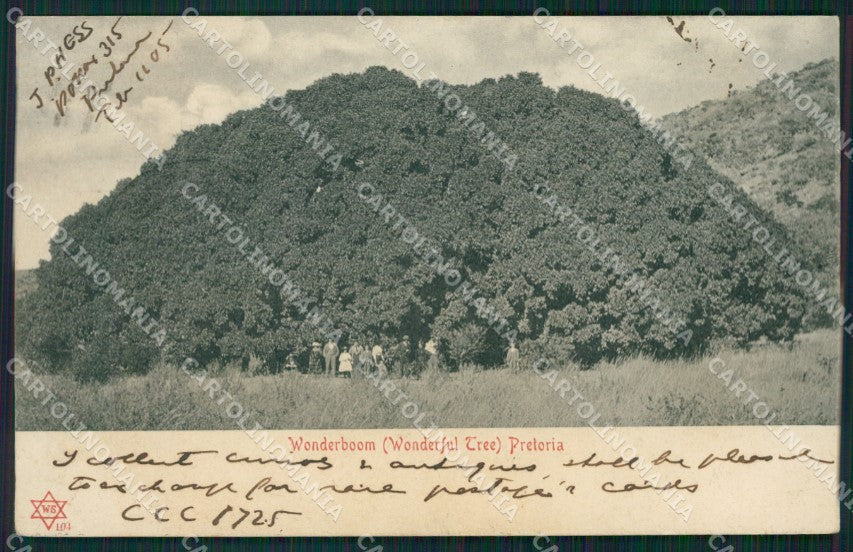 J P HESS
Box 315
Pretoria
Feb 11 05
Wonderboom (Wonderful Tree) Pretoria
I collect curios & antiques shall be pleased
to exchange for rare postage & cards
CCC 8725
WS
104
CARTOLINOMANIA